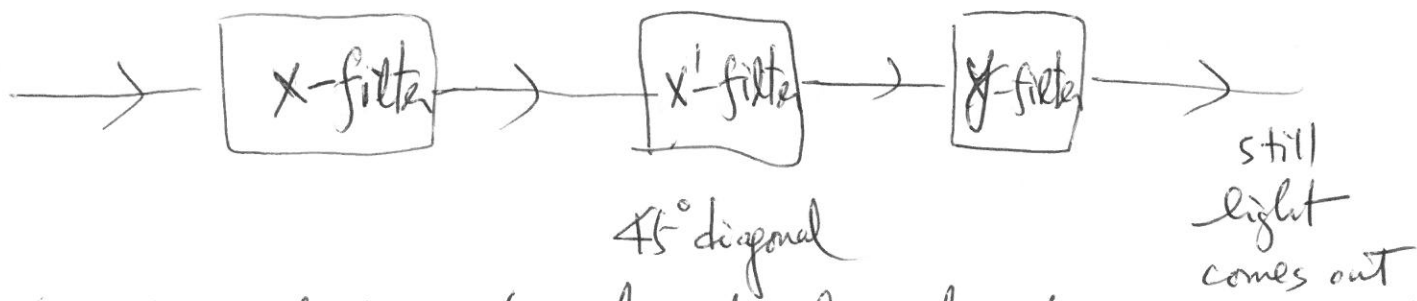 x-filter x'-filter y-filter
45° diagonal
still
light
comes out